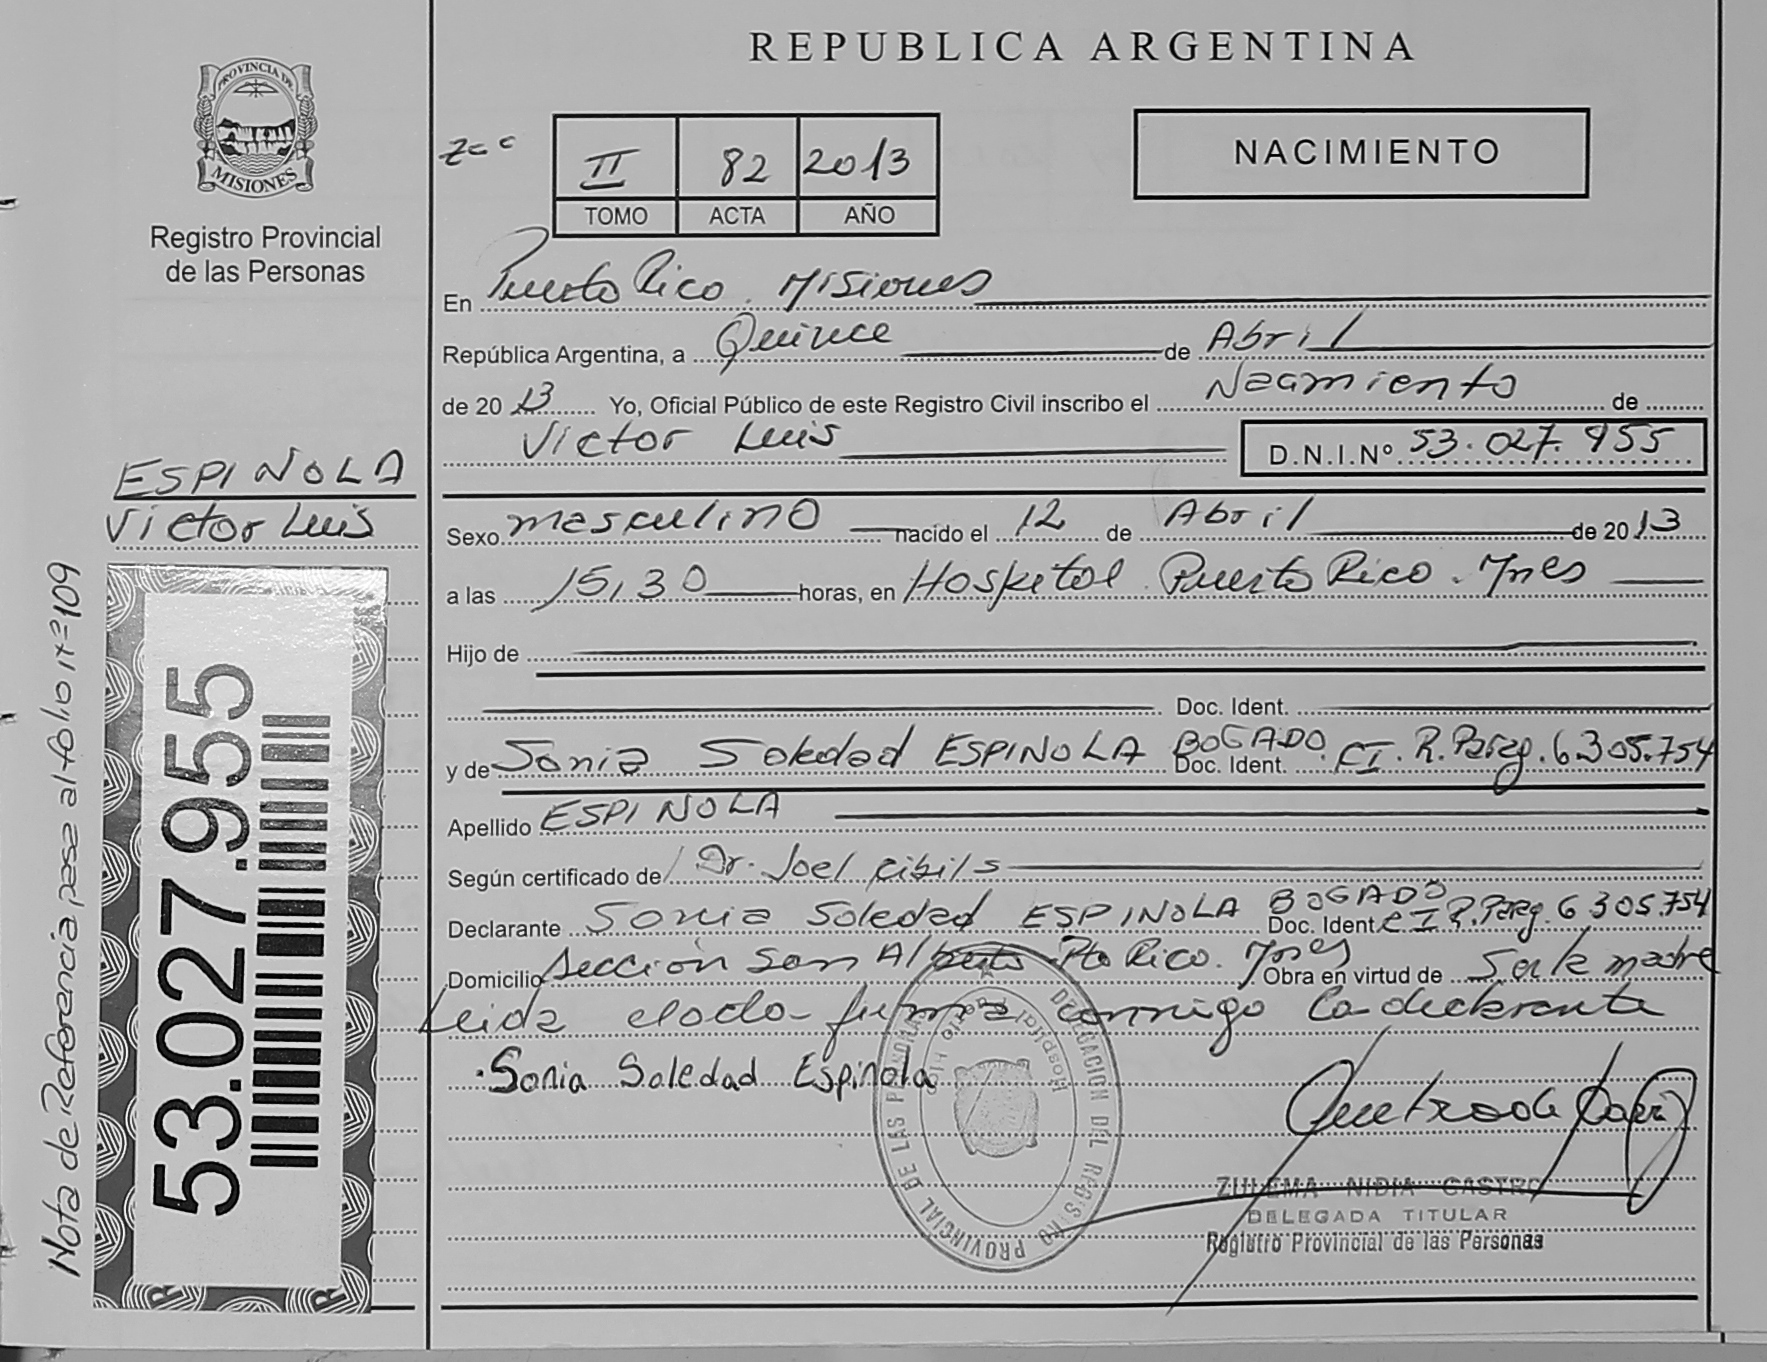 REPUBLICA ARGENTINA
PROVINCIA DE
MISIONES
Registro Provincial
de las Personas
II 82 2013
TOMO ACTA AÑO
NACIMIENTO
En Puerto Rico. Misiones
República Argentina, a Quince de Abril
de 2013 Yo, Oficial Público de este Registro Civil inscribo el Nacimiento de
Victor Luis D.N.I.Nº 53.027.955
ESPINOLA
Victor Luis
Sexo masculino nacido el 12 de Abril de 2013
a las 15,30 horas, en Hospital Puerto Rico. Mnes
Hijo de
Doc. Ident.
y de Sonia Soledad ESPINOLA BOGADO Doc. Ident. CI. R. Parag. 6305.754
Apellido ESPINOLA
Según certificado de Dr. Joel Cibils
Declarante Sonia Soledad ESPINOLA BOGADO Doc. Ident. CI R. Parag. 6305.754
Domicilio Sección San Alberto Pto Rico. Mnes Obra en virtud de Ser la madre
Leida el acta firma conmigo la declarante
Sonia Soledad Espinola
ZULEMA NIDIA CASTRO
DELEGADA TITULAR
Registro Provincial de las Personas
DELEGACION DEL REGISTRO PROVINCIAL DE LAS PERSONAS
Hospital Puerto Rico
53.027.955
Nota de Referencia pasa al folio nº 109